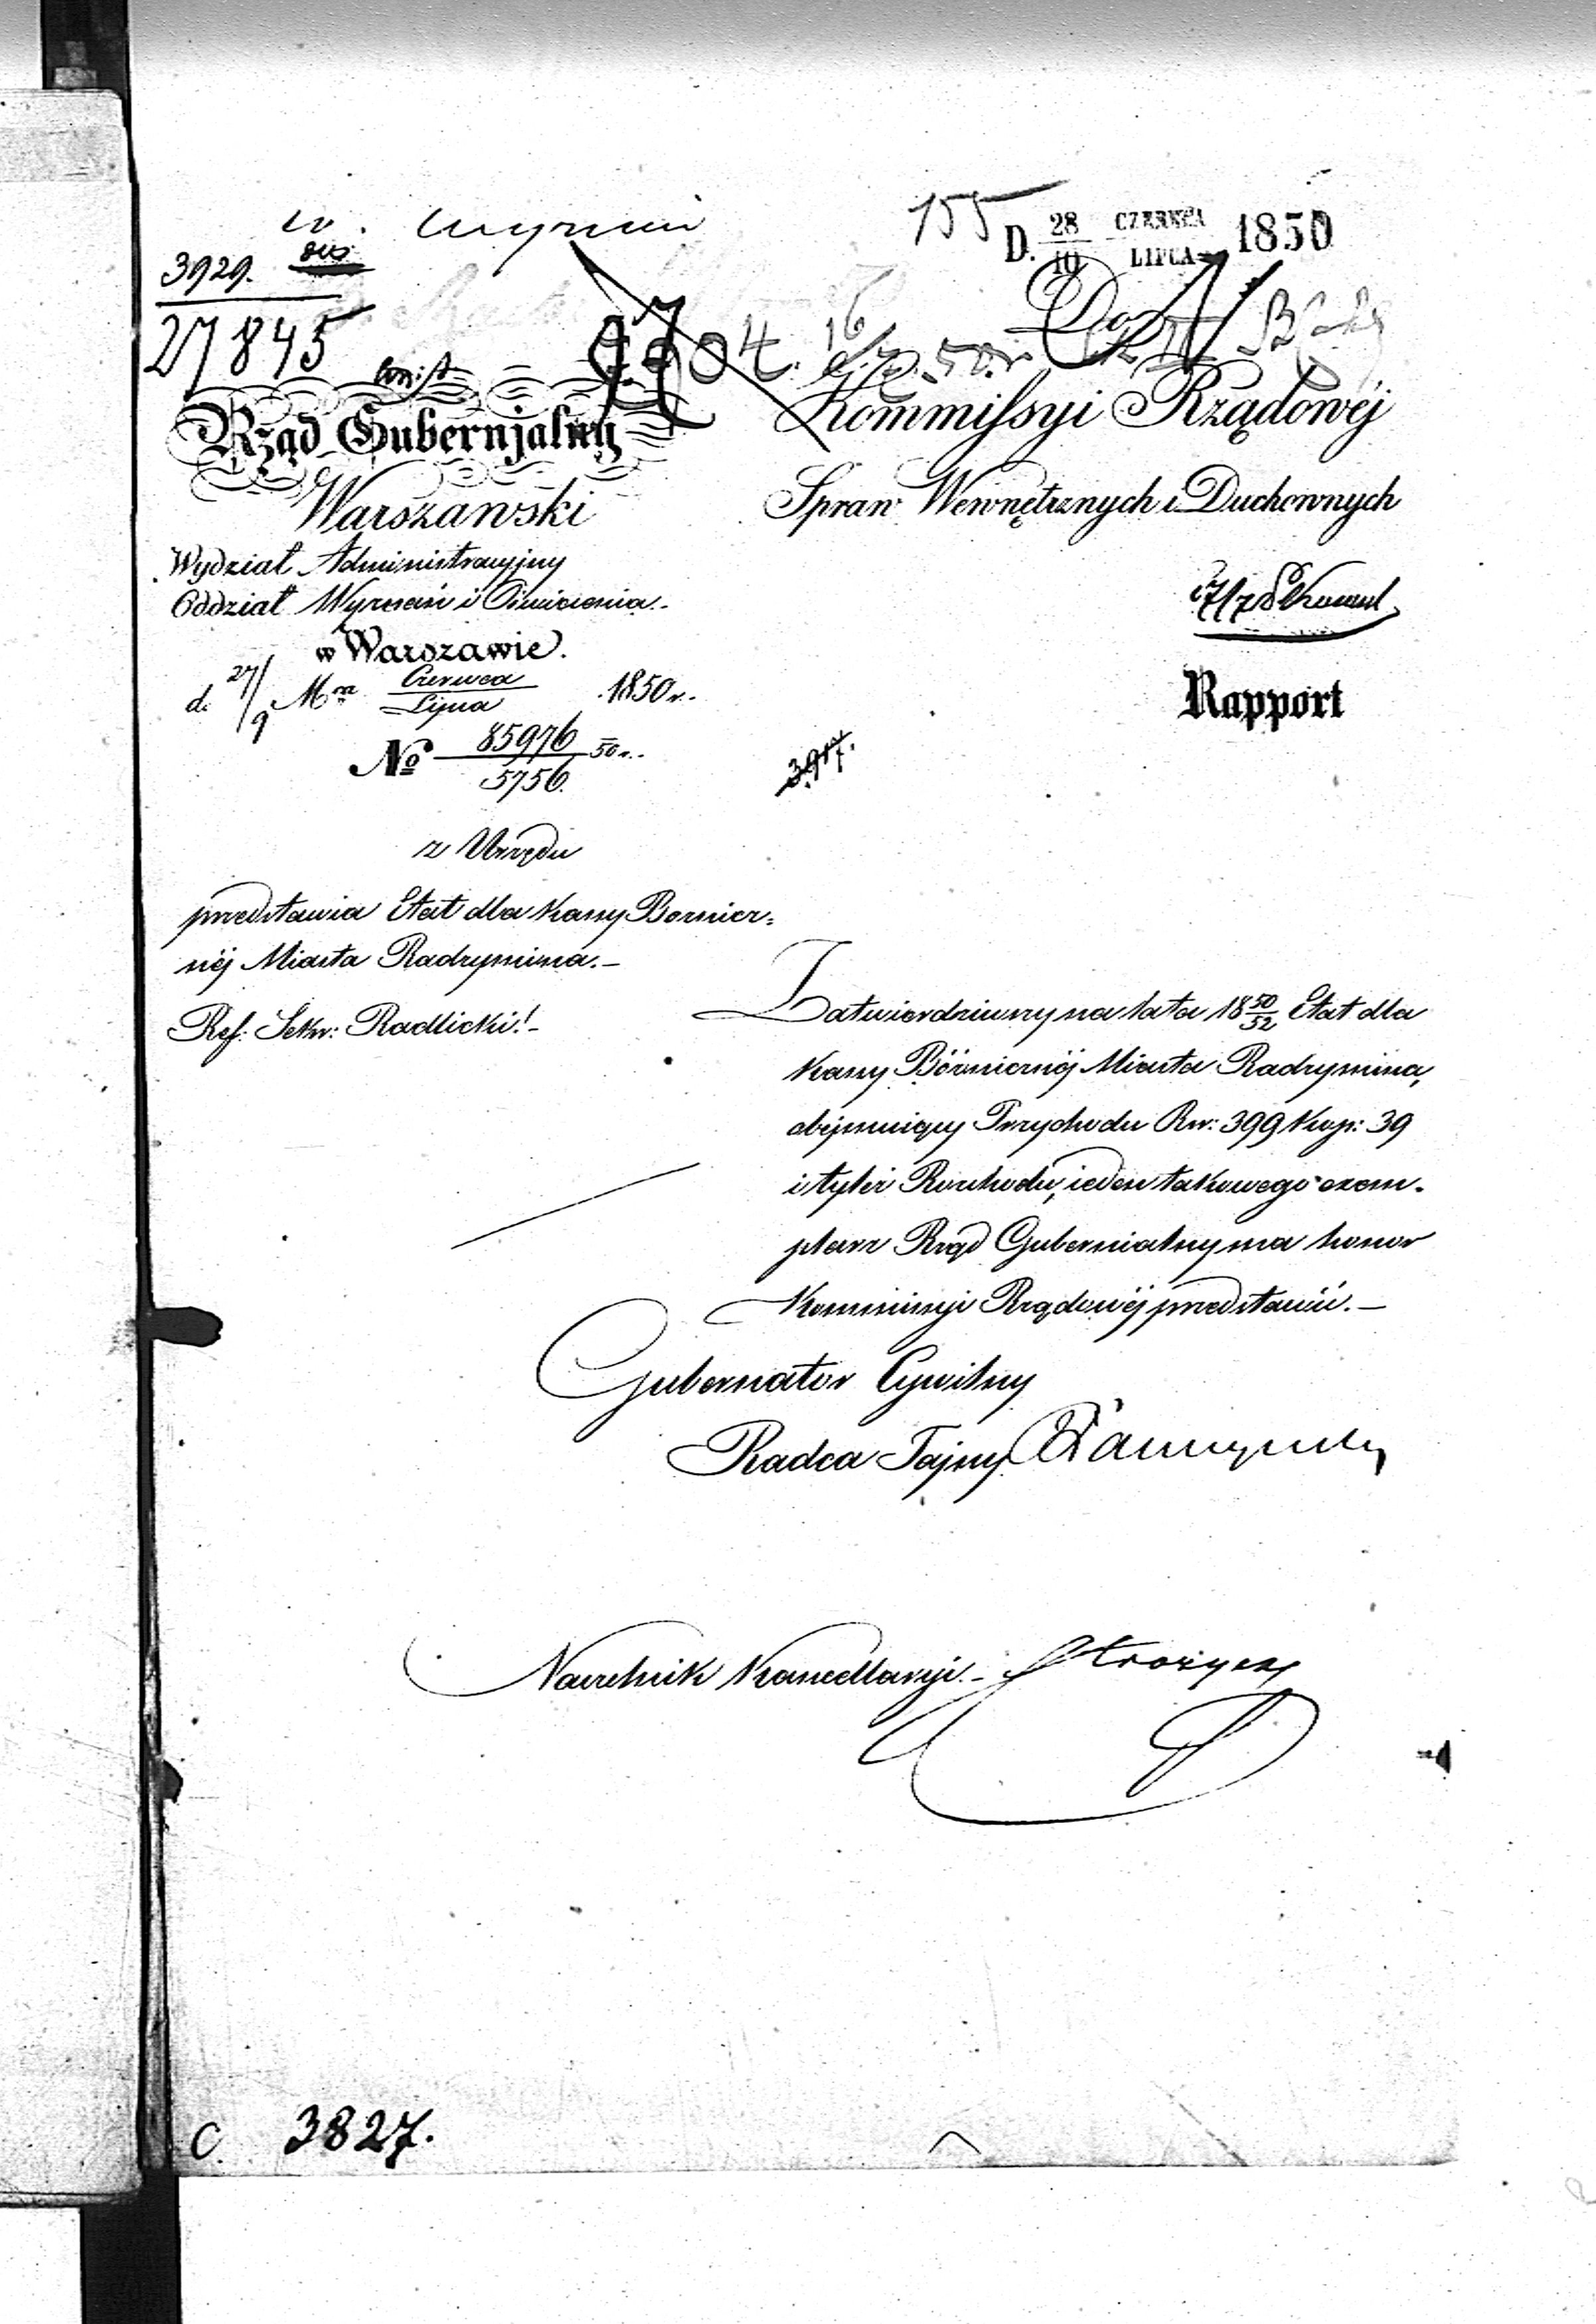 155
D. 28/10 CZERWCA/LIPCA 1850
3929.
27845
Do
Rząd Gubernjalny
Warszawski
Kommissyi Rządowéj
Spraw Wewnętrznych i Duchownych
Wydział Administracyjny
Oddział Wyznań i Oświecenia.
w Warszawie.
d. 27/9 Mca Czerwca/Lipca 1850 r.
No 85976/5756. 50 r.
Rapport
3917.
z Urzędu
przedstawia Etat dla Kassy Boźnicz=
néj Miasta Radzymina.–
Ref. Sekr: Radlicki!–
Zatwierdziwszy na lata 18 50/52 Etat dla
Kassy Bóźnicznéj Miasta Radzymina,
obejmujący Przychodu Rsr: 399 Kop: 39
i tyleż Rozchodu, ieden takowego exem-
plarz Rząd Gubernialny ma honor
Kommissyi Rządowéj przedstawić.–
Gubernator Cywilny
Radca Tajny
Naczelnik Kancellaryi.–
C. 3827.